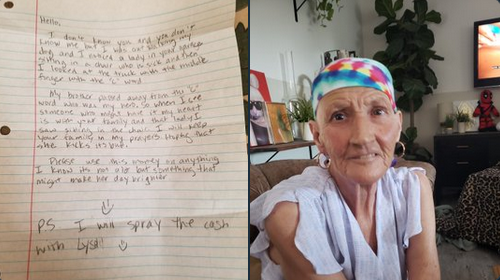 Hello,
I don't know you and you don't
know me, but I was out walking my
dog and I noticed a lady in your garage
sitting in a chair who is sick and then
I looked at the truck with the middle
finger with the "C" word.
My brother passed away from the "C"
word who was my hero. So when I see
someone who might have it my heart
is with your family and that lady I
saw sitting in the chair. I will keep
your family in my prayers hoping that
she kicks its butt.
Please use this money on anything
I know its not alot but something that
might make her day brighter.
PS. I will spray the cash
with Lysol!